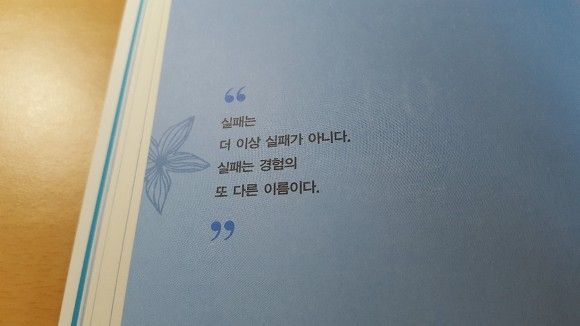 “
실패는
더 이상 실패가 아니다.
실패는 경험의
또 다른 이름이다.
”